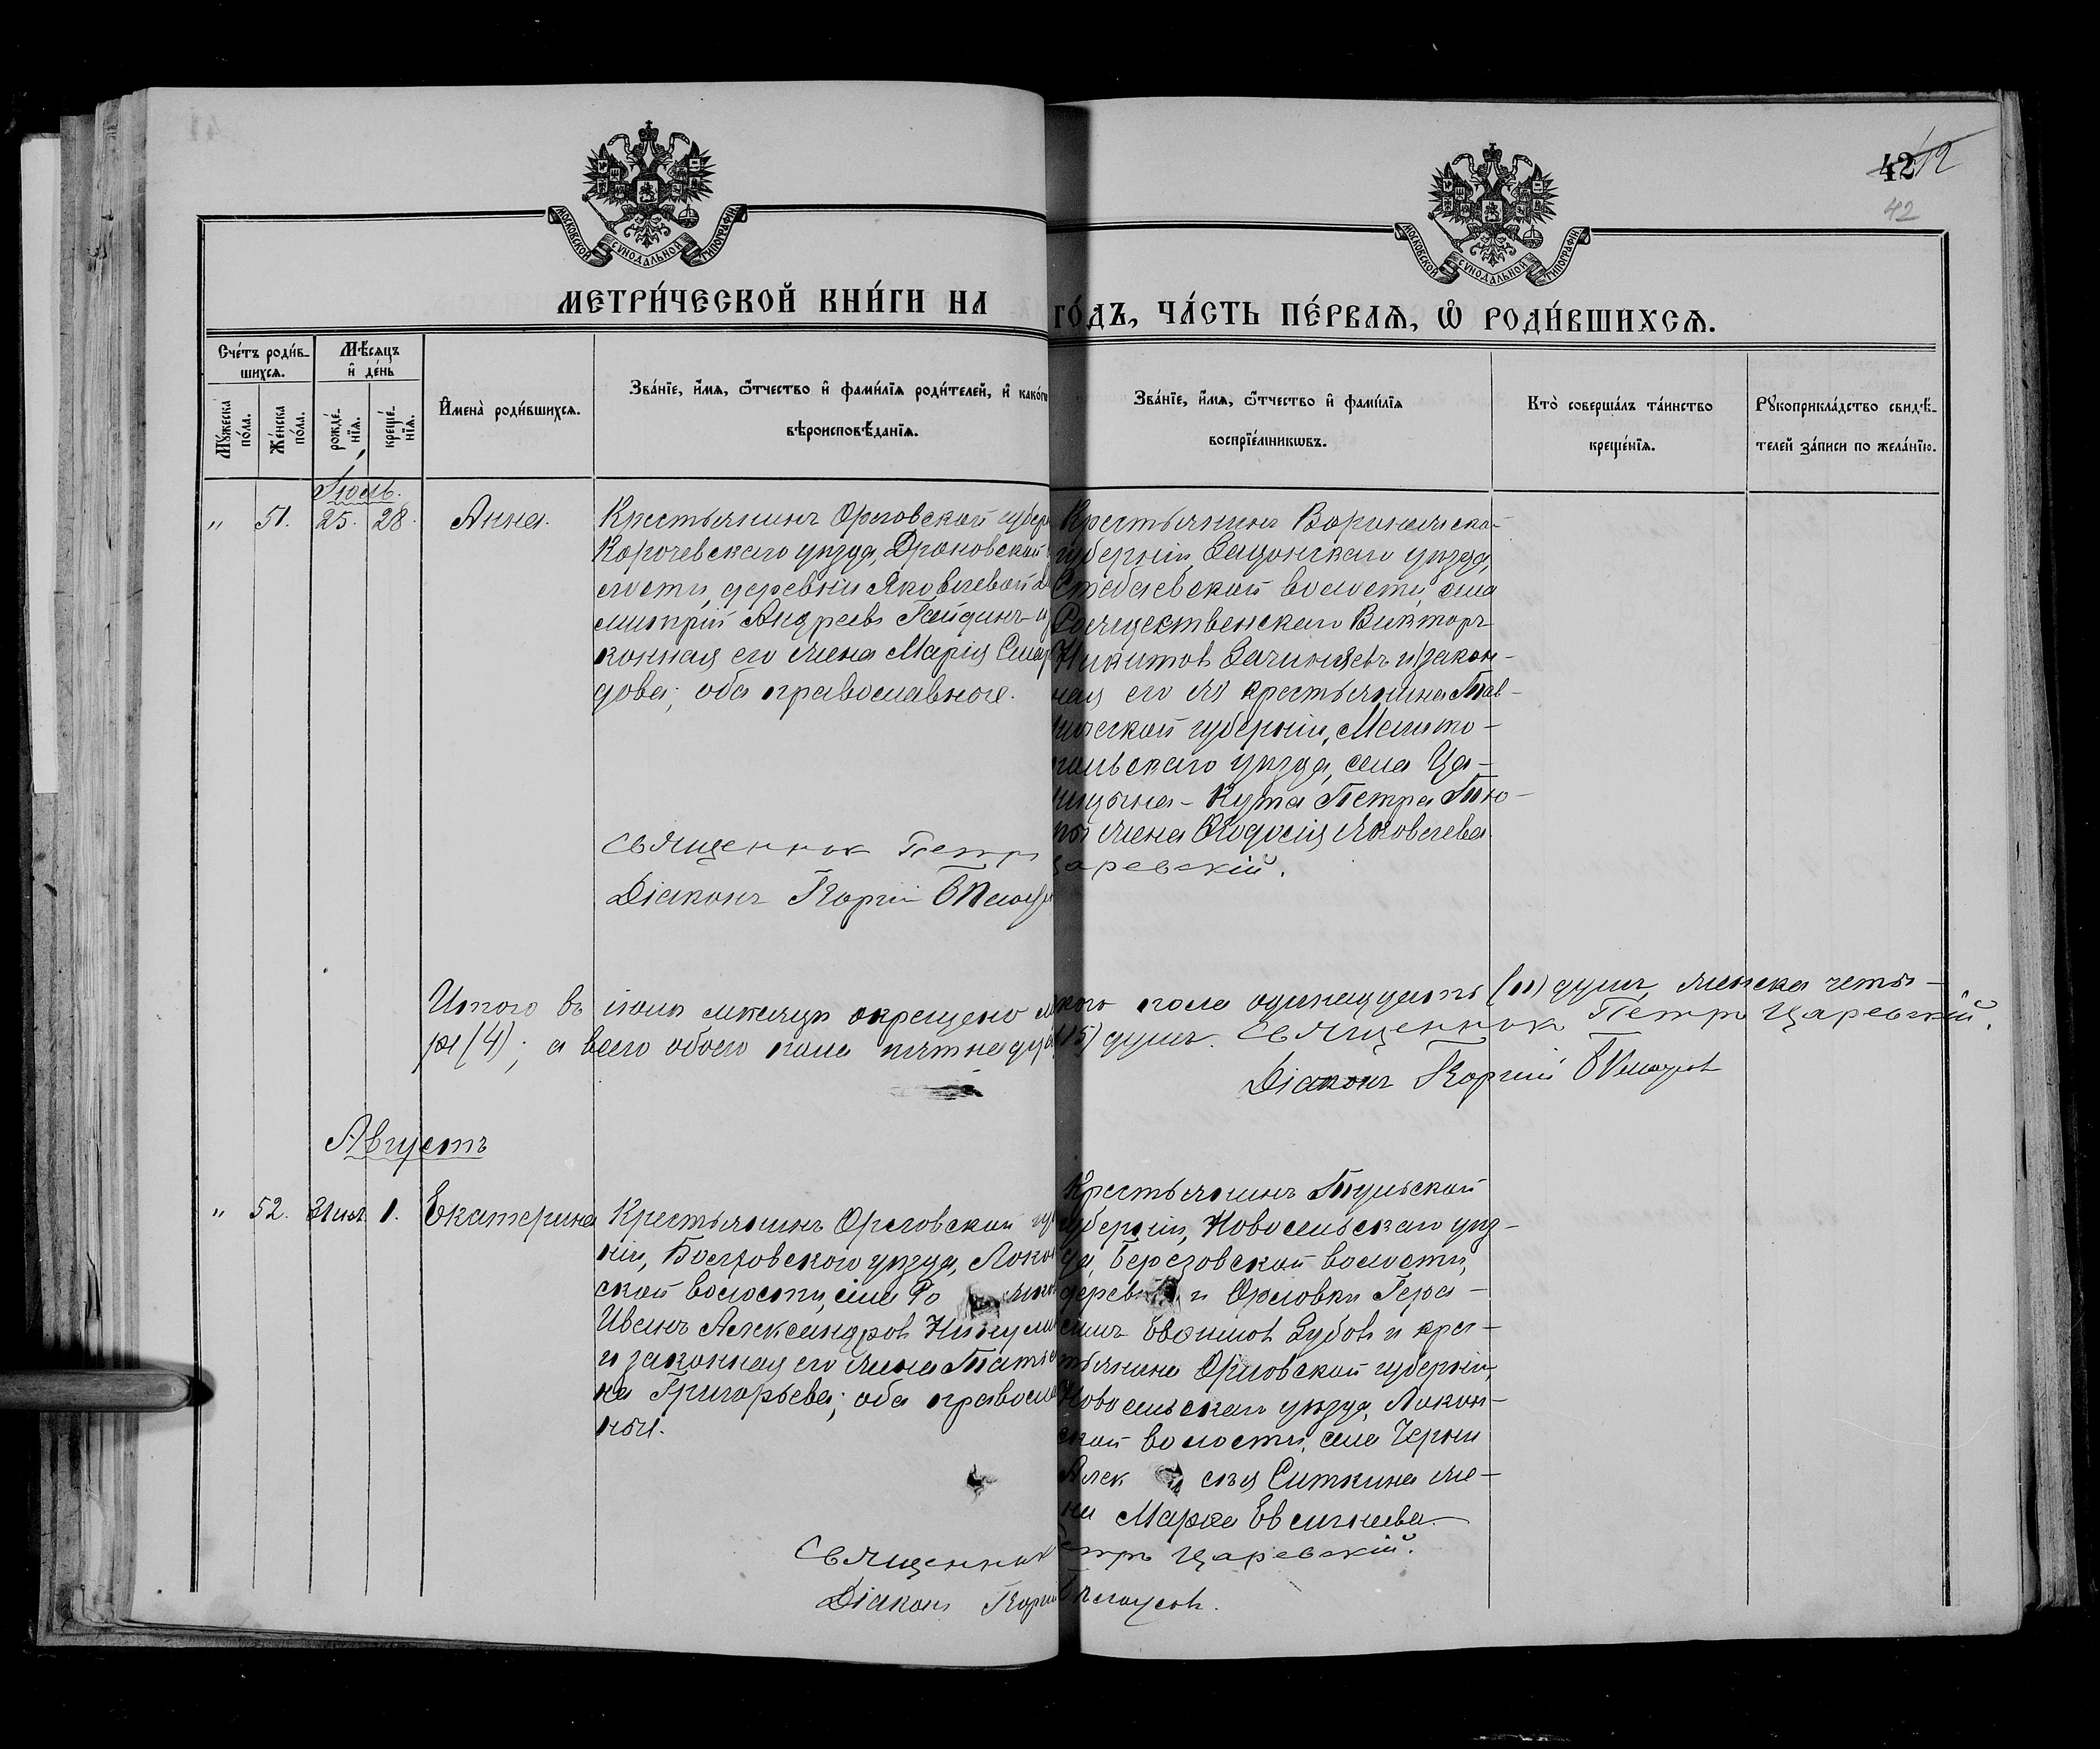 42 12
42
МОСКОВСКОЙ СѴНОДАЛЬНОЙ ТИПОГРАФІИ
МОСКОВСКОЙ СѴНОДАЛЬНОЙ ТИПОГРАФІИ
МЕТРИ́ЧЕСКОЙ КНИ́ГИ НА ГО́ДЪ, ЧА́СТЬ ПЕ́РВАѦ, Ѽ РОДИ́ВШИХСѦ.
Сче́тъ роди́в-
шихсѧ.
Мѣ́сѧцъ
и҆ де́нь
Мꙋжеска по́ла.
Же́нска по́ла.
рожде́-
нїѧ.
креще́-
нїѧ.
И҆мена̀ роди́вшихсѧ.
Зва́нїе, и҆́мѧ, ѻ҆́тчество и҆ фами́лїѧ роди́телей, и҆ како́гѡ
вѣроисповѣ́данїѧ.
Зва́нїе, и҆́мѧ, ѻ҆́тчество и҆ фами́лїѧ
воспрїе́мникѡвъ.
Кто̀ соверша́лъ та́инство
креще́нїѧ.
Рꙋкоприкла́дство свидѣ́-
телей за́писи по жела́нїю.
Іюль.
" 51. 25. 28. Анна.
Крестьянинъ Орловской губер
Карачевскаго уѣзда, Дроновской
лости, деревни Яковлевой Ди
митрій Андреевъ Гайдинъ и
конная его жена Марія Спир
дова; оба православные.
Крестьянинъ Воронежско-
губерніи, Задонскаго уѣзда,
Стебаевской волости, села
Рождественскаго Викторъ
Никитовъ и закон-
ная его крестьянина Тав-
рической губерніи, Мелито-
польскаго уѣзда, села Ца-
рицына-Кута Петра Тю-
жена Ѳеодосія Яковлева.
Священник Петръ Царевскій.
Діаконъ Георгій Бѣлоусов
Итого въ іюлѣ мѣсяцѣ окрещено мужескаго пола одинадцать (11) душъ, женска четы-
ре (4); а всего обоего пола пятнадцать (15) душъ. Священник Петръ Царевскій.
Діаконъ Георгій Бѣлоусовъ
Августъ
" 52. 31 іюл. 1. Екатерина
Крестьянинъ Орловской гу
ніи, Болховскаго уѣзда, Локон
ской волости, села Ро
Иванъ Александровъ
и законная его жена Татья
на Григорьева; оба правосла
ные.
Крестьянинъ Тульской
губерніи, Новосильскаго уѣз-
да, Березовской волости,
деревни Орловки Гера-
симъ Зубовъ и крес-
тьянина Орловской губерніи,
Новосильскаго уѣзда, Локон-
ской волости, села Черни
Алексѣя Ситкина же-
на Марѳа Евсигнеева.
Священник Петръ Царевскій.
Діаконъ Георгій Бѣлоусовъ.